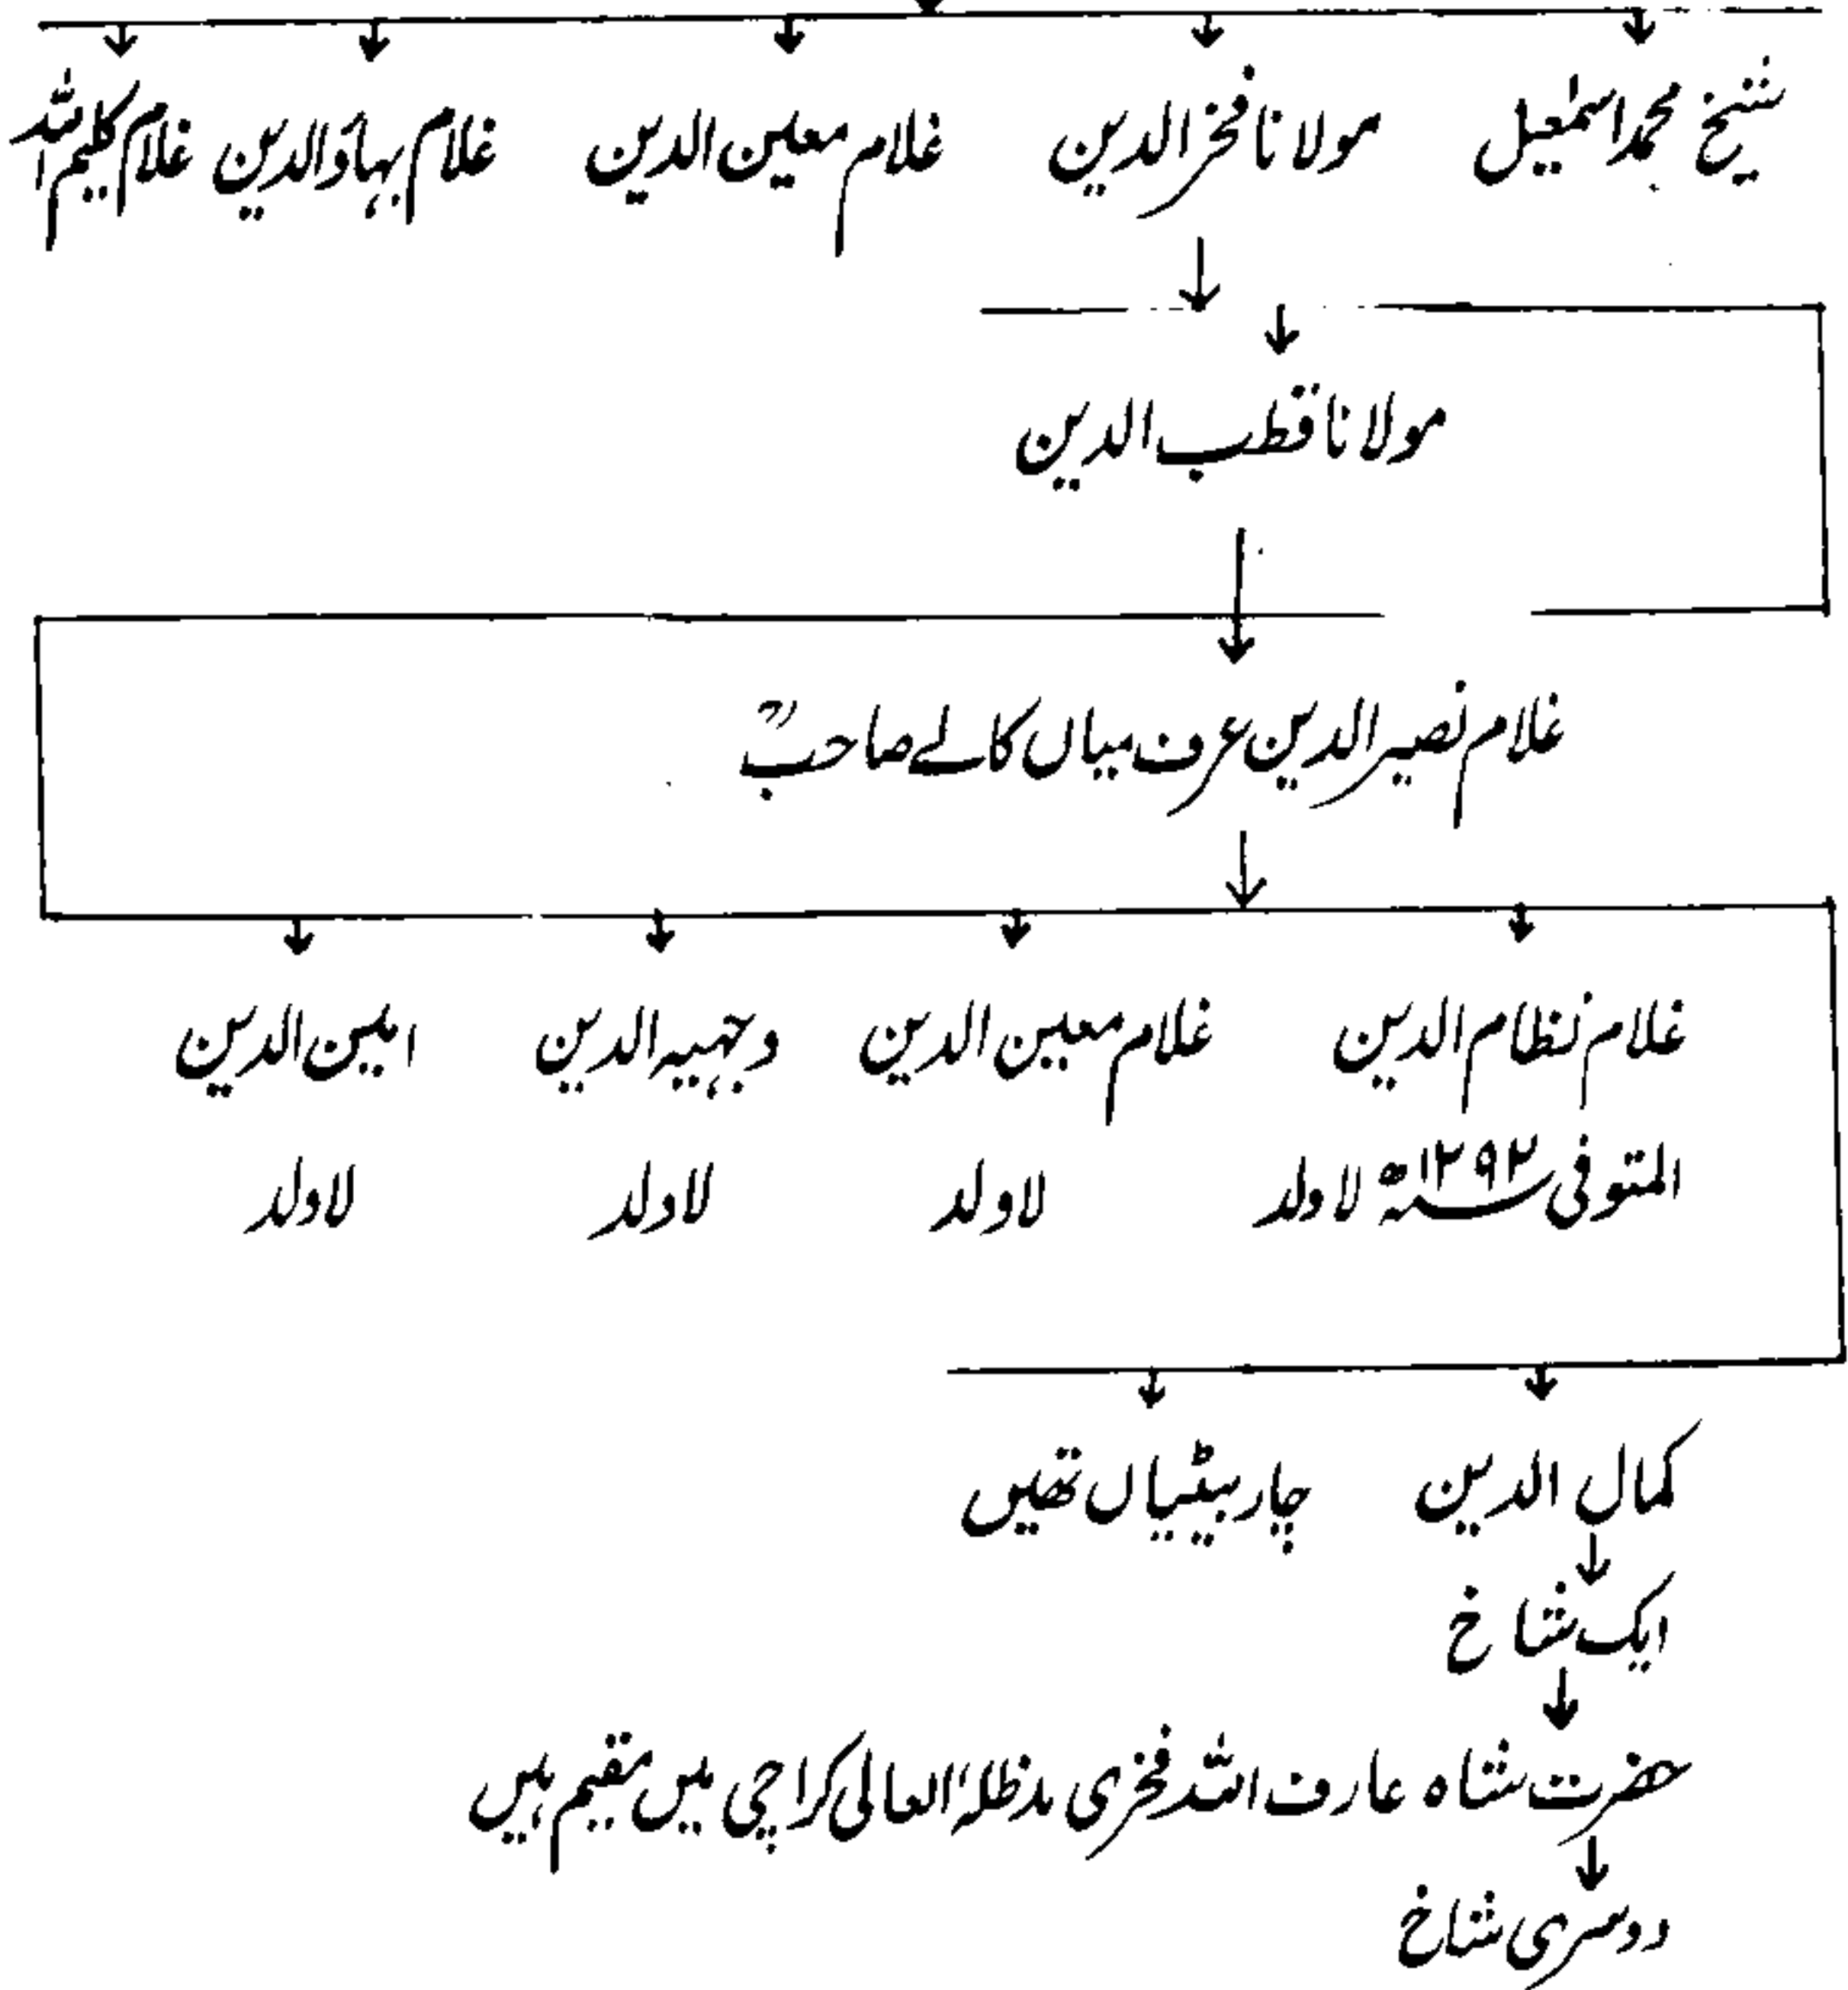 شیخ محمد اسمٰعیل مولانا فخر الدین غلام معین الدین غلام بہاؤ الدین غلام کلیم اللہ
مولانا قطب الدین
غلام نصیر الدین عرف میاں کالے صاحبؒ
غلام نظام الدین غلام معین الدین وجہیہ الدین امین الدین
المتوفی ۱۲۹۲ھ لاولد لاولد لاولد لاولد
کمال الدین چار بیٹیاں تھیں
ایک شاخ
حضرت شاہ عارف اللہ فخری مدظلہ العالی کراچی میں مقیم ہیں
دوسری شاخ